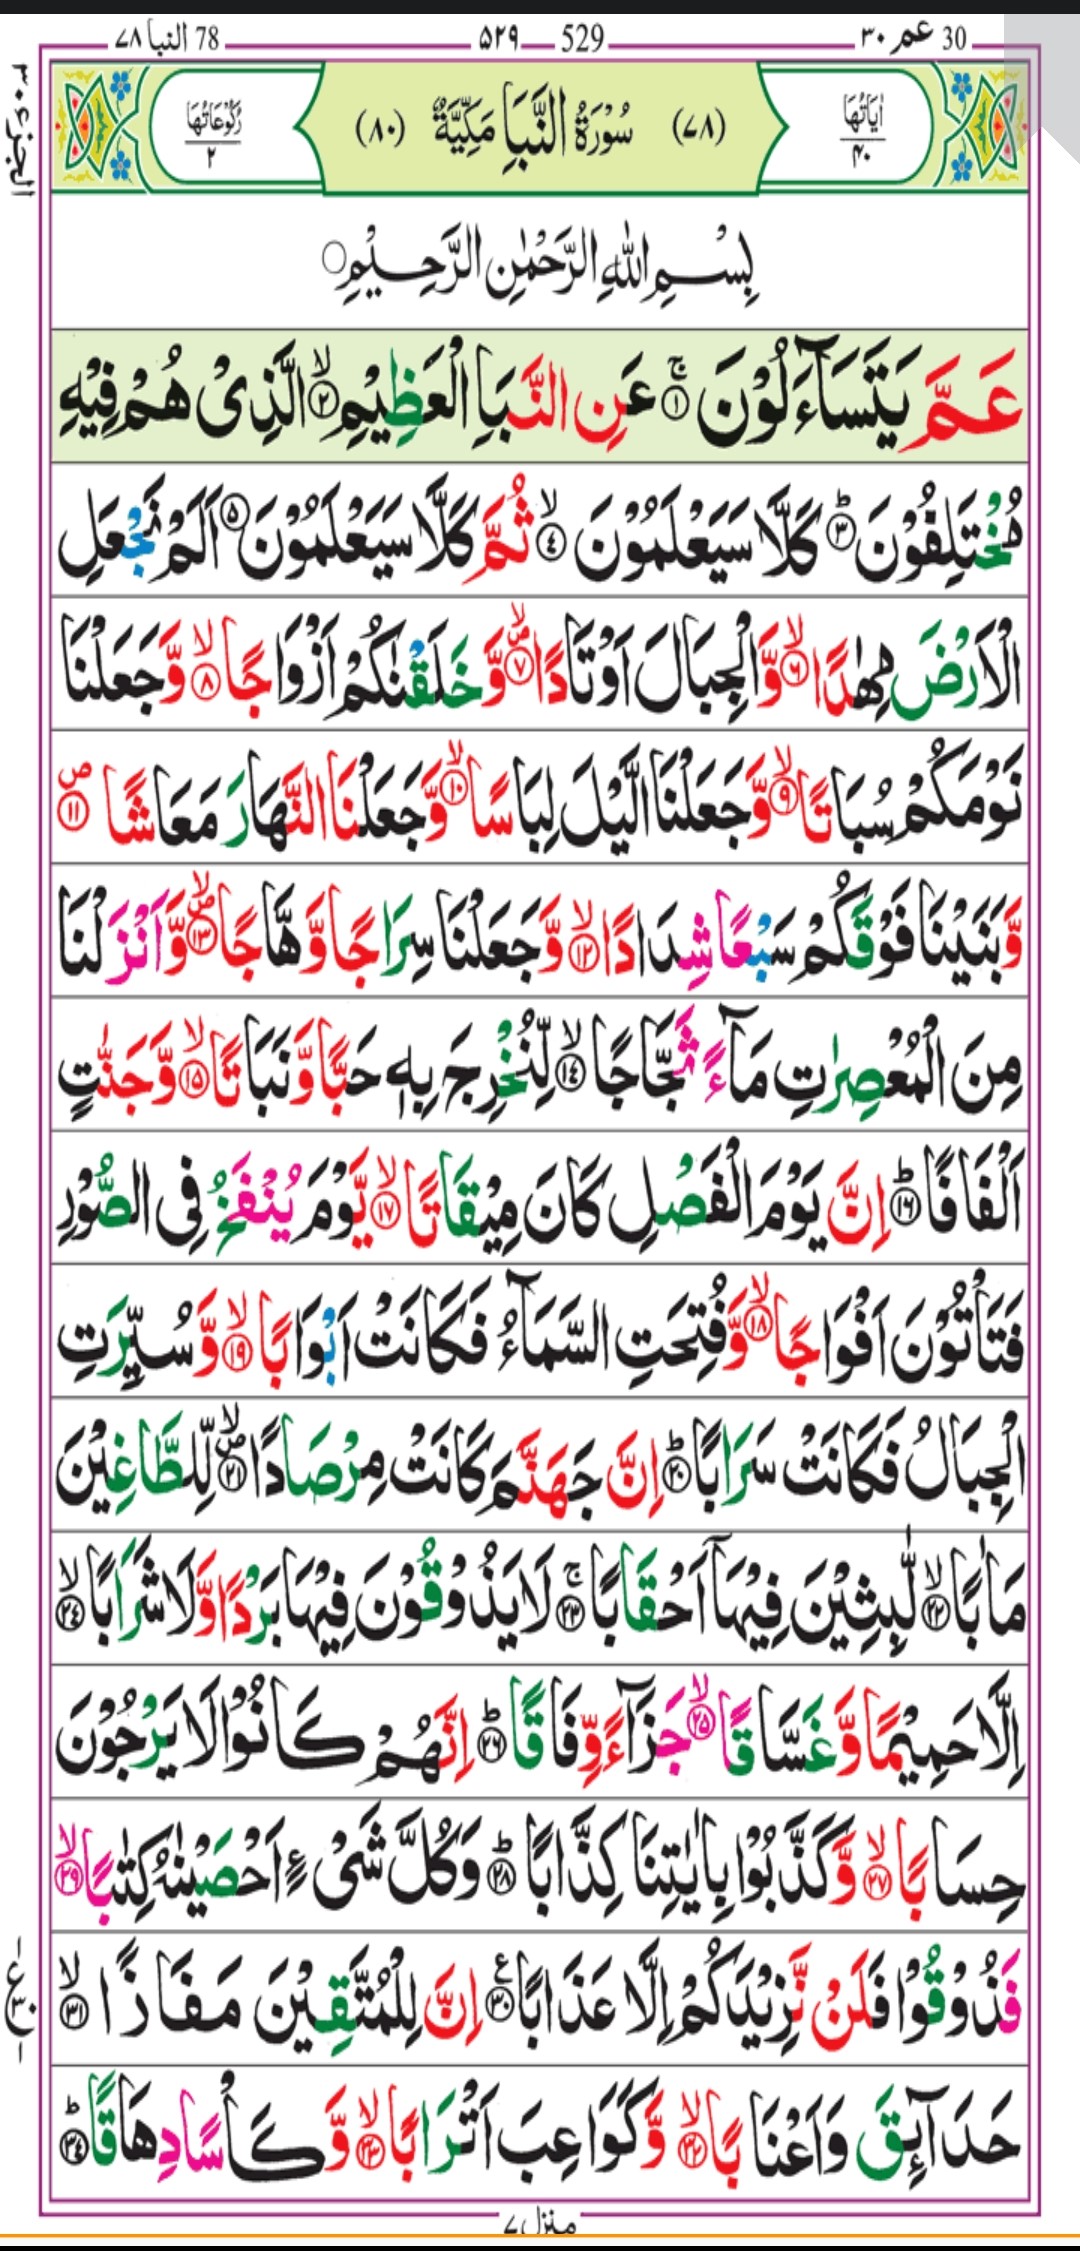 30 عم ۳۰
529 ۵۲۹
78 النبا ۷۸
الجزء ۳۰
اٰیَاتُهَا ۴۰
(۷۸) سُوْرَةُ النَّبَاِ مَكِّيَّةٌ (۸۰)
رُكُوْعَاتُهَا ۲
بِسْمِ اللّٰهِ الرَّحْمٰنِ الرَّحِیْمِ○
عَمَّ یَتَسَآءَلُوْنَ ۚ﴿۱﴾ عَنِ النَّبَاِ الْعَظِیْمِ ۙ﴿۲﴾ الَّذِیْ هُمْ فِیْهِ
مُخْتَلِفُوْنَ ؕ﴿۳﴾ كَلَّا سَیَعْلَمُوْنَ ۙ﴿۴﴾ ثُمَّ كَلَّا سَیَعْلَمُوْنَ ﴿۵﴾ اَلَمْ نَجْعَلِ
الْاَرْضَ مِهٰدًا ۙ﴿۶﴾ وَّ الْجِبَالَ اَوْتَادًا ۪ۙ﴿۷﴾ وَّ خَلَقْنٰكُمْ اَزْوَاجًا ۙ﴿۸﴾ وَّ جَعَلْنَا
نَوْمَكُمْ سُبَاتًا ۙ﴿۹﴾ وَّ جَعَلْنَا الَّیْلَ لِبَاسًا ۙ﴿۱۰﴾ وَّ جَعَلْنَا النَّهَارَ مَعَاشًا ۪﴿۱۱﴾
وَّ بَنَیْنَا فَوْقَكُمْ سَبْعًا شِدَادًا ۙ﴿۱۲﴾ وَّ جَعَلْنَا سِرَاجًا وَّهَّاجًا ۪ۙ﴿۱۳﴾ وَّ اَنْزَلْنَا
مِنَ الْمُعْصِرٰتِ مَآءً ثَجَّاجًا ۙ﴿۱۴﴾ لِّنُخْرِجَ بِهٖ حَبًّا وَّ نَبَاتًا ۙ﴿۱۵﴾ وَّ جَنّٰتٍ
اَلْفَافًا ؕ﴿۱۶﴾ اِنَّ یَوْمَ الْفَصْلِ كَانَ مِیْقَاتًا ۙ﴿۱۷﴾ یَّوْمَ یُنْفَخُ فِی الصُّوْرِ
فَتَاْتُوْنَ اَفْوَاجًا ۙ﴿۱۸﴾ وَّ فُتِحَتِ السَّمَآءُ فَكَانَتْ اَبْوَابًا ۙ﴿۱۹﴾ وَّ سُیِّرَتِ
الْجِبَالُ فَكَانَتْ سَرَابًا ؕ﴿۲۰﴾ اِنَّ جَهَنَّمَ كَانَتْ مِرْصَادًا ۪ۙ﴿۲۱﴾ لِّلطَّاغِیْنَ
مَاٰبًا ۙ﴿۲۲﴾ لّٰبِثِیْنَ فِیْهَاۤ اَحْقَابًا ۚ﴿۲۳﴾ لَا یَذُوْقُوْنَ فِیْهَا بَرْدًا وَّ لَا شَرَابًا ۙ﴿۲۴﴾
اِلَّا حَمِیْمًا وَّ غَسَّاقًا ۙ﴿۲۵﴾ جَزَآءً وِّفَاقًا ؕ﴿۲۶﴾ اِنَّهُمْ كَانُوْا لَا یَرْجُوْنَ
حِسَابًا ۙ﴿۲۷﴾ وَّ كَذَّبُوْا بِاٰیٰتِنَا كِذَّابًا ؕ﴿۲۸﴾ وَ كُلَّ شَیْءٍ اَحْصَیْنٰهُ كِتٰبًا ۙ﴿۲۹﴾
فَذُوْقُوْا فَلَنْ نَّزِیْدَكُمْ اِلَّا عَذَابًا ﴿۳۰﴾ ع اِنَّ لِلْمُتَّقِیْنَ مَفَازًا ۙ﴿۳۱﴾
ع ۳۰ ۱
حَدَآىِٕقَ وَ اَعْنَابًا ۙ﴿۳۲﴾ وَّ كَوَاعِبَ اَتْرَابًا ۙ﴿۳۳﴾ وَّ كَاْسًا دِهَاقًا ؕ﴿۳۴﴾
منزل ۷